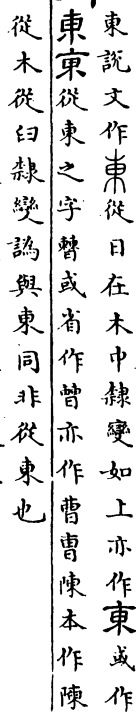 東說文作東從日在木中隸變如上亦作東或作
東東從東之字轉或省作曹亦作曹曺陳本作陳
從木從臼隸變譌與東同非從東也